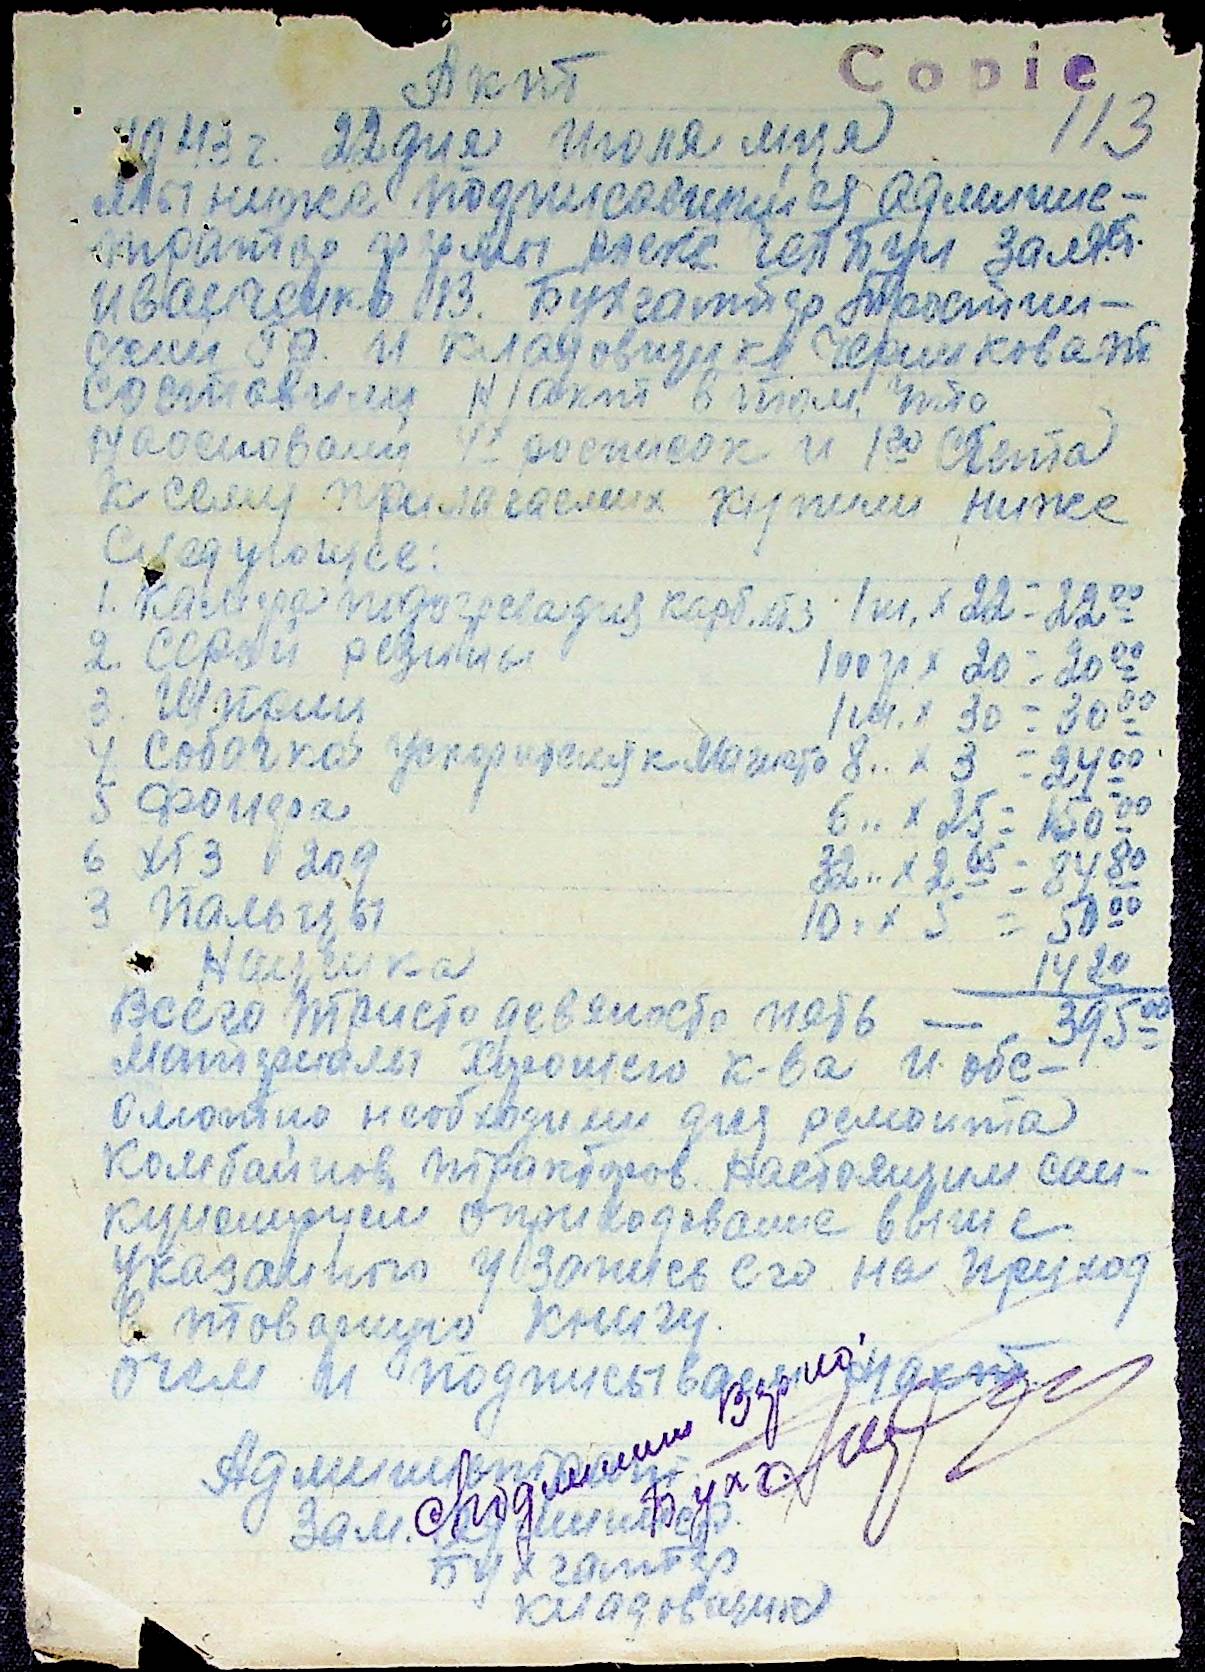 Copie
Акт
113
1943 г. 22 дня Июля м-ца
мы ниже подписавшийся админис-
тратор фермы Зам.
Иванченко Бухгалтер
и кладовщик
составили н/акт в том, что
на основании 4х росписок и 1го счета
к сему прилагаемих купили ниже
следующее:
1. Камера для карб. 1 ш. х 22 = 22 00
2. резины 100 гр х 20 = 20 00
3. 1 ш. х 30 = 30 00
4 Собачка к Магнето 8 .. х 3 = 24 00
5 6 .. х 25 = 150 00
6 ХТЗ 32 .. х 2 65 = 84 80
3 Пальцы 10 .. х 5 = 50 00
Наценка 14 20
Всего триста девяносто пять — 395 00
материалы хорошего к-ва и обс-
олютно необходими для ремонта
Комбайнов, тракторов. Настоящим сан-
кционируем оприходование выше
указанного и запись его на приход
в товарную книгу.
о чем и подписываем н/акт
Администрат.
Зам. Админстр.
Бухгалтер
кладовщик
С подлинним Верно:
Бухг.